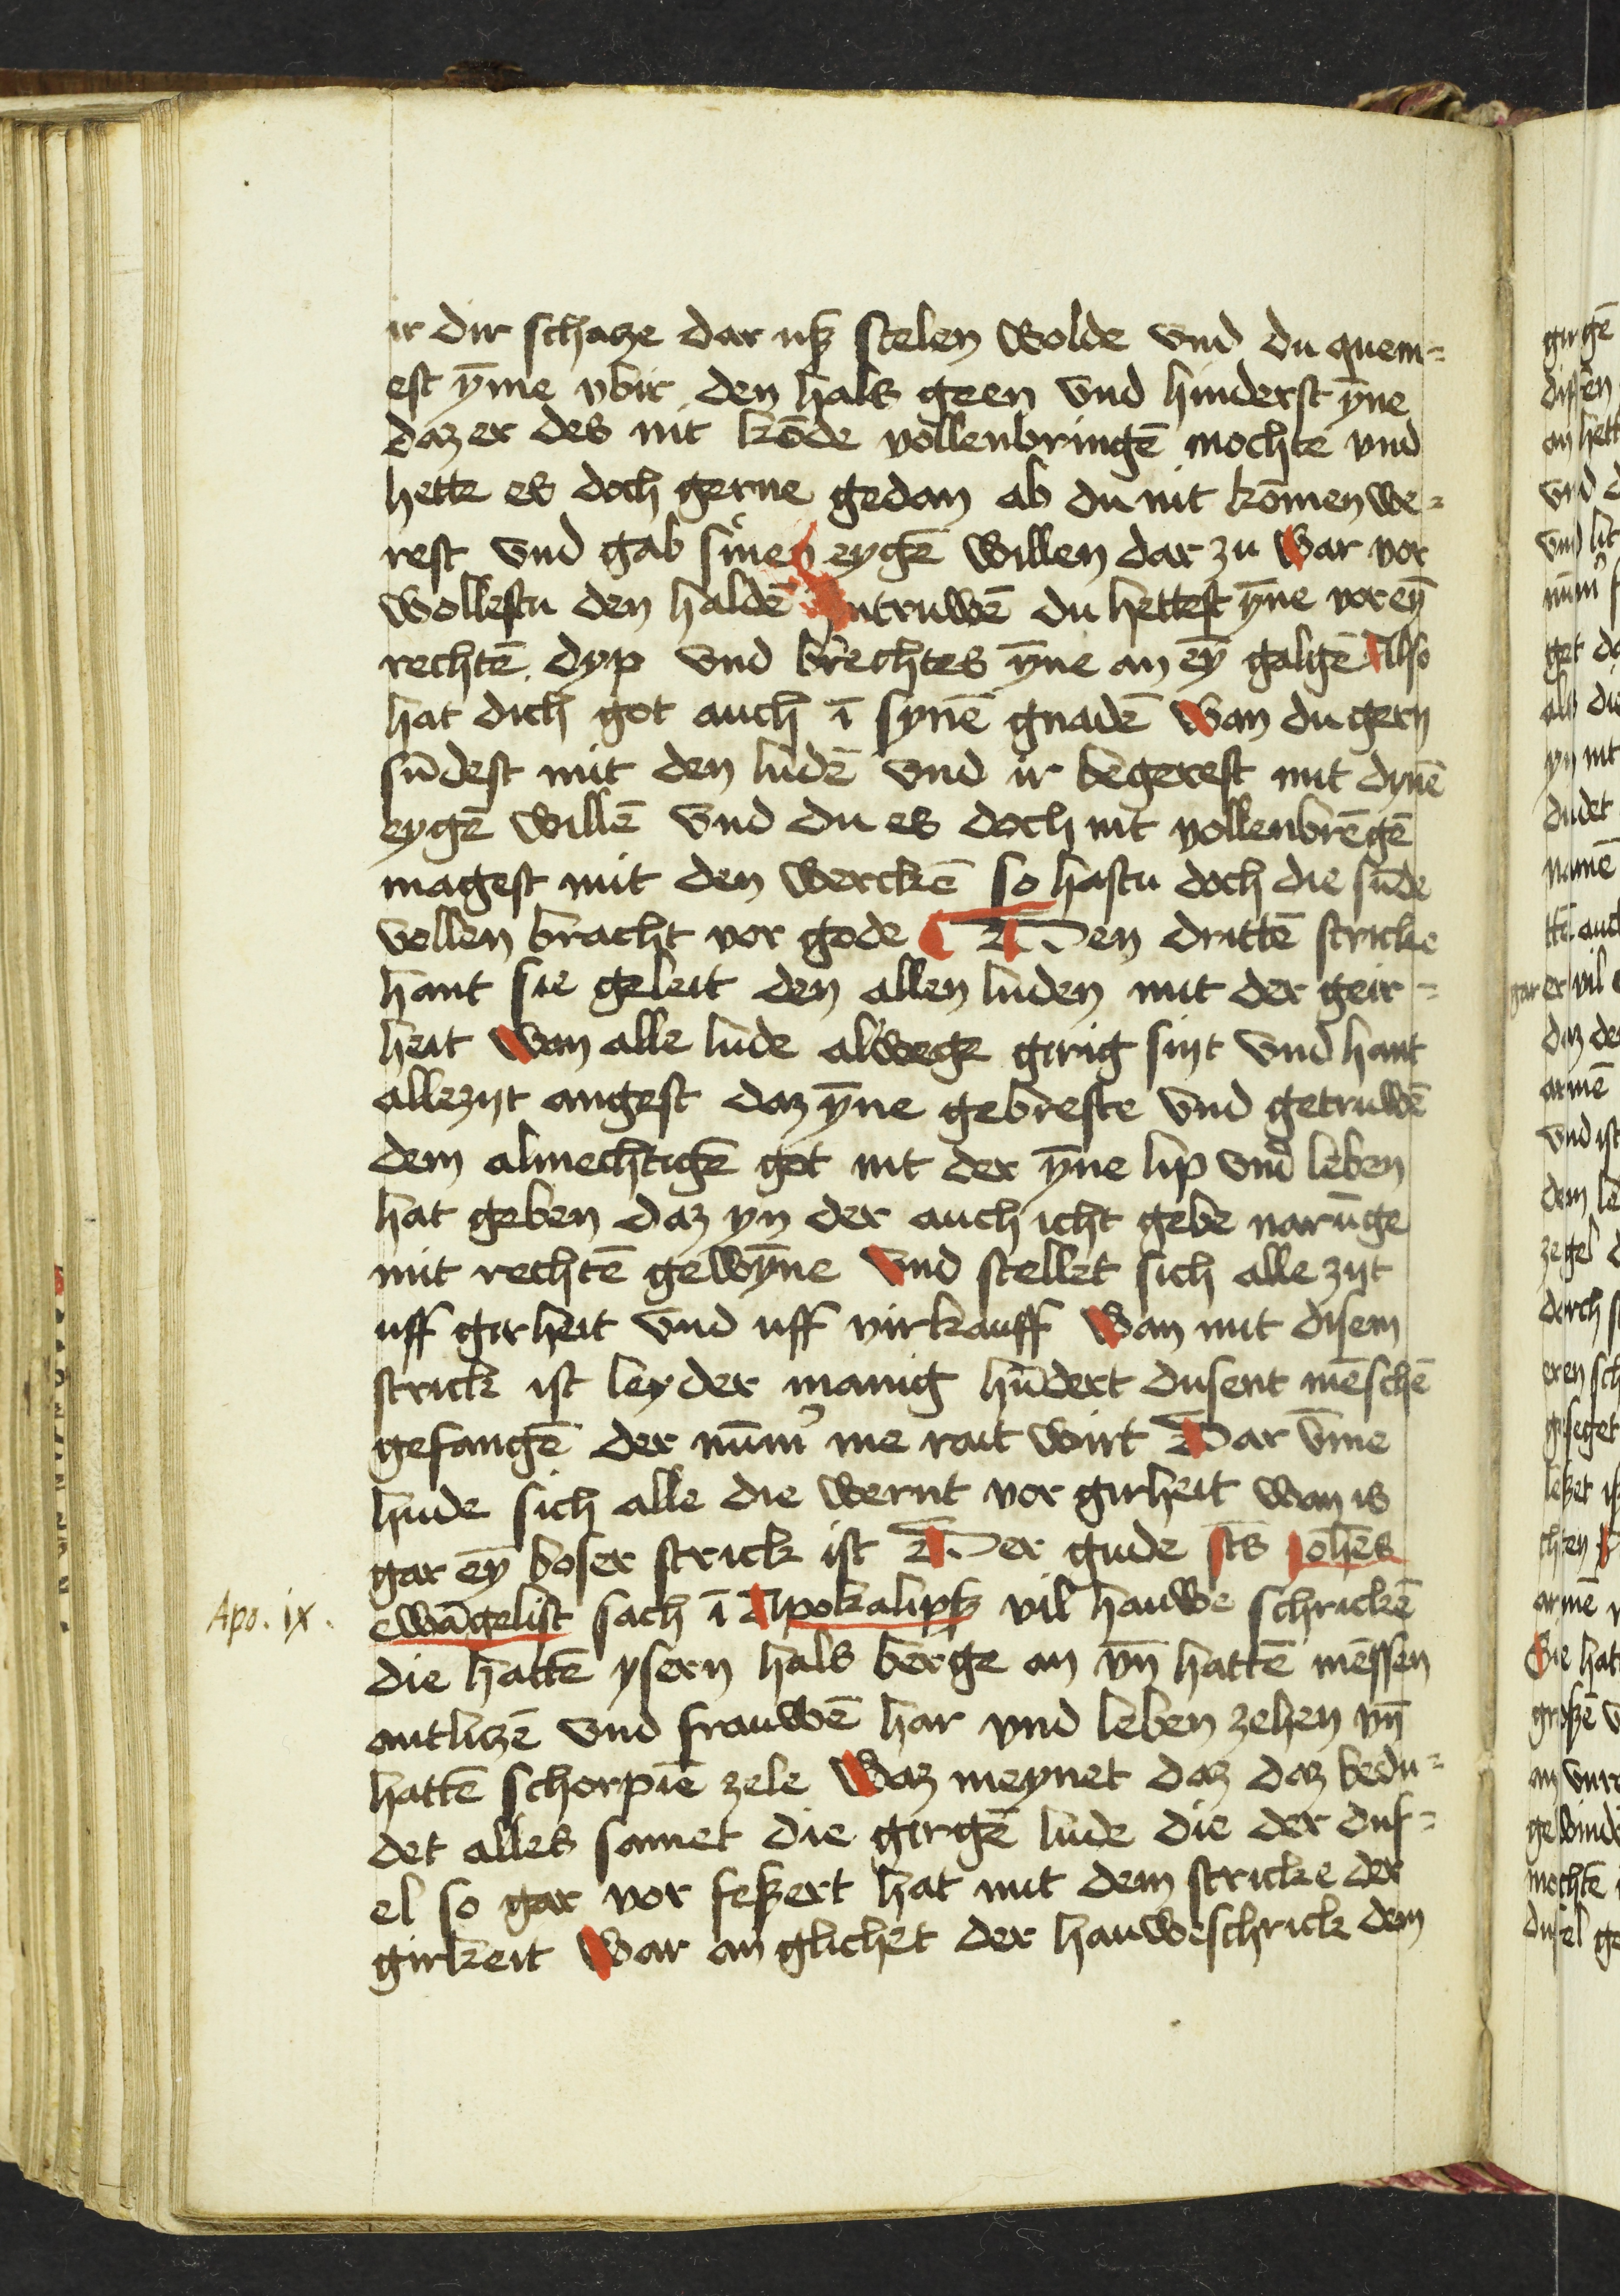 ir dir schatze dar uß stelen wolde vnd du quem=
est ȳme vbir den hals geen vnd hinderst ȳne
daz er des nit kōde vollenbringē mochte vnd
hette es doch gerne gedan ab du nit kōmen we=
rest vnd gab sinen eygē willen dar zu war vor
wollestu den haldē Intruwē du hettest ȳne vor eȳ
rechtē dyp vnd brechtes ȳne an eȳ galgē Also
hat dich got auch ī synē gnadē wan du gern
sūdest mit den ludē vnd ir begerest mit dynē
eygē willē vnd du es doch nit vollenbrēgē
magest mit den werckē so hastu doch die sūde
vollen bracht vor gode Den drittē stricke
hant sie geleit den allen luden mit der geir=
heit wan alle lude alwege girig sint vnd hant
allezyt angest daz ȳne gebreste vnd getruwē
dem almechtigē got nit der ȳne lip vnd leben
hat geben daz yn der auch icht gebe narūge
mit rechtē gewȳne vnd stellet sich alle zyt
uff girheit vnd uff virkauff wan mit disem
strick ist leyder manig hūdert dusent mēschē
gefangē der nūm̄ me rait wirt Dar vm̄e
hude sich alle die wernt vor girheit wan is
gar eȳ boser strick ist Der gude sts̄ Johēs
Apo. ix.
ewāgelist sach ī Apokalipß vil hauwe schrickē
die hattē ysern hals berge an vn̄ hattē mēssen
antlitzē vnd frauwē har vnd leben zehen vn̄
hattē schorpiē zele waz meynet daz daz bedu=
det alles samet die girgē lude die der duf=
el so gar vor feßert hat mit dem stricke der
girkeit war an glichet der hauweschrick dem